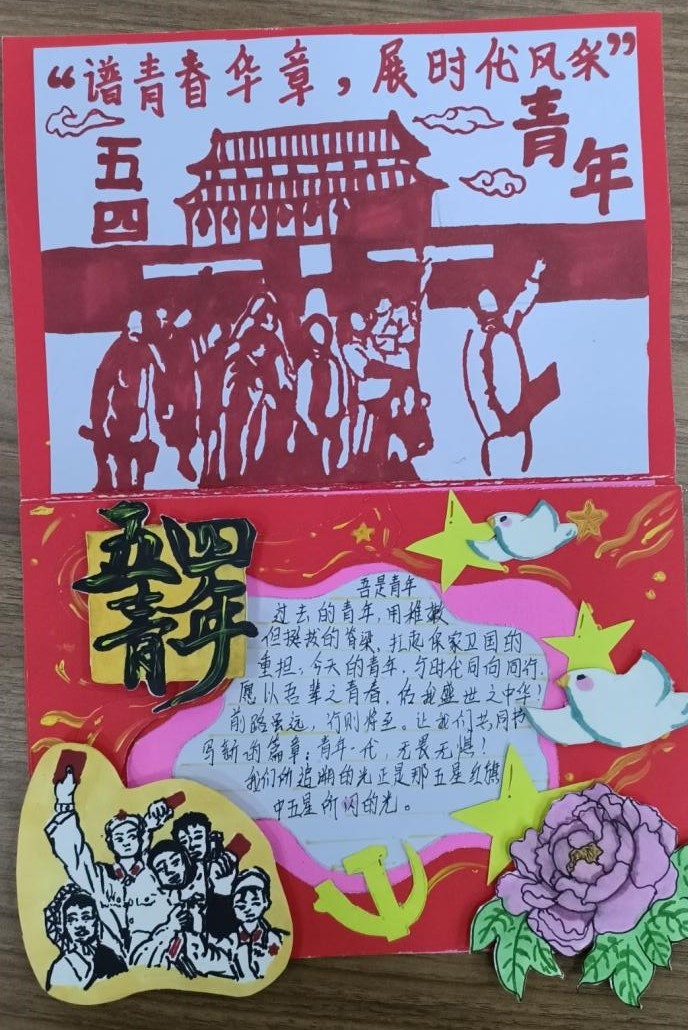 “谱青春华章，展时代风采”
五四
青年
五四
青年
吾是青年
过去的青年，用稚嫩
但挺拔的脊梁，扛起保家卫国的
重担，今天的青年，与时代同向同行
愿以吾辈之青春，佑我盛世之中华！
前路虽远，行则将至。让我们共同书
写新的篇章：青年一代，无畏无惧！
我们所追溯的光正是那五星红旗
中五星所闪的光。